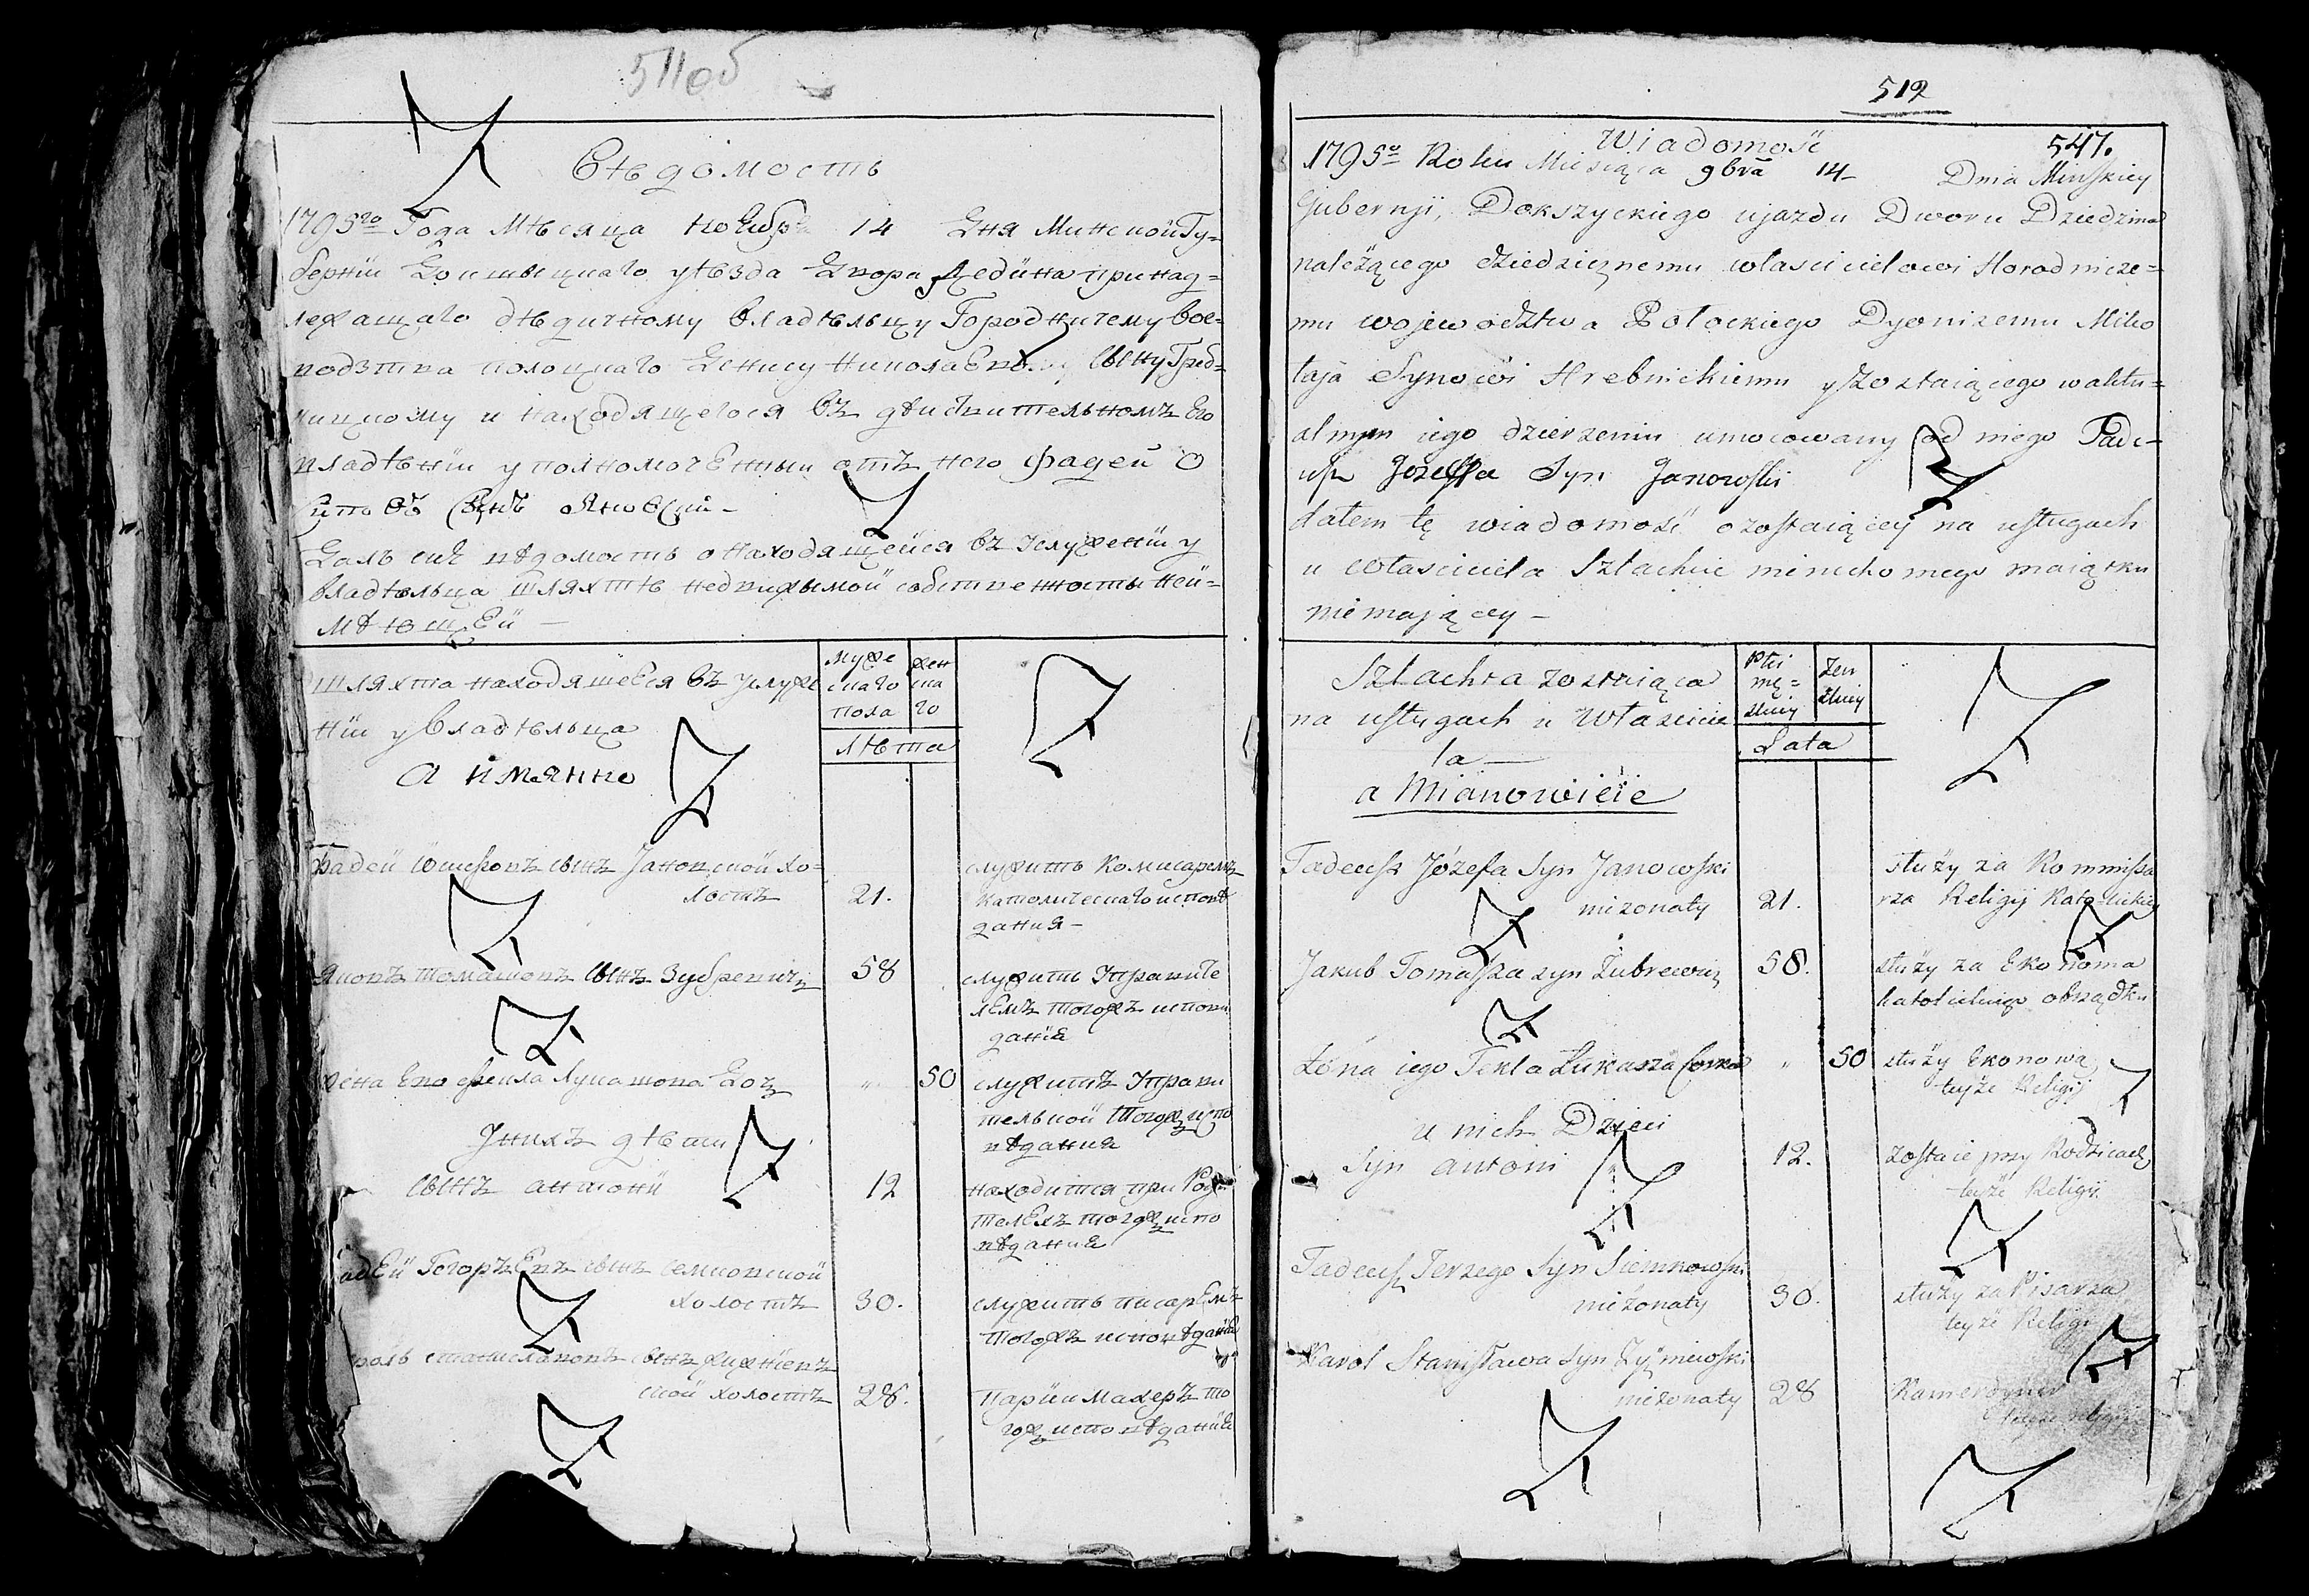 511об
Вѣдомость
1795го Года Мѣсяца Ноября 14 Дня Минской Гу=
берніи Докшыцкаго уѣзда Двора Дедина принад=
лежащаго дѣдичному владѣльцу Городничему вое=
водзтва полоцкаго Денису Николаеву сыну Греб=
ницкому и находящегося въ дѣйствительномъ Его
владѣніи уполномоченный отъ него Фадей О
сиповъ сынъ Яновскій –
Далъ сию вѣдомость о находящейся въ услуженіи у
владѣльца шляхтѣ недвижымой собственности неи=
мѣющей –
шляхта находяшеяся въ услуже
ніи у владѣльца
А имянно
муже
скаго
пола
жен
ска
го
лѣта
Фадей Юшефовъ сынъ Яновской хо=
лостъ 21. служитъ комисаремъ
католическаго исповѣ
дания –
Яковъ томашовъ сынъ Зубревичъ 58 служитъ Управите
лемъ тогожъ испови
данія
жена Его Фекла Лукашова Доч " 50 служитъ Управи
тельной тогожъ испо
вѣдания
У нихъ дѣти
сынъ антоній 12 находится при Роди
телехъ тогожъ испо
вѣдания
адей Егорьевъ сынъ семковской
холостъ 30. служитъ писаремъ
тогожъ исповѣданія
роль станиславовъ сынъ жижнев
ской холостъ 28. парикмахеръ то
гожъ исповѣданія
512
547.
Wiadomość
1795o Roku Miesiąca 9bra 14 Dnia Minskiey
Gubernji, Dokszyckiego ujazdu Dworu Dziedzina
należącego dziedzicznemu własciciełowi Horodnicze=
mu wojewodztwa Połockiego Dyonizemu Miko
łaja Synowi Hrebnickiemu y zostaiącego w aktu=
alnym iego dzierzeniu umocowany od niego Tade=
usz Jozeffa Syn Janowski
dałem tę wiadomość o zostaiącey na usługach
u własciciela Szlachcie nieruchomego maiątku
niemającey –
Szlachta zostaiąca
na usługach u Własciciє
la –
a Mianowicie
Płci
mę=
skiey
żen
skiey
Lata
Tadeusz Józefa Syn Janowski
nieżonaty 21. służy za Kommissa
rza Religij Katolickiey
Jakub Tomasza syn Zubrewicz 58. służy za Ekonoma
katolickiego obrządku
żona iego Tekla Łukasza Corka " 50 służy Ekonową
teyże Religij
u nich Dzieci
Syn antoni 12. zostaie przy Rodzicach
teyże Religij
Tadeusz Jerzego Syn Siemkowski
nieżonaty 30. służy za Pisarza
teyże Religi
Karol Stanisława Syn Zyźniewski
nieżonaty 28 Kamerdyner
teyże religij